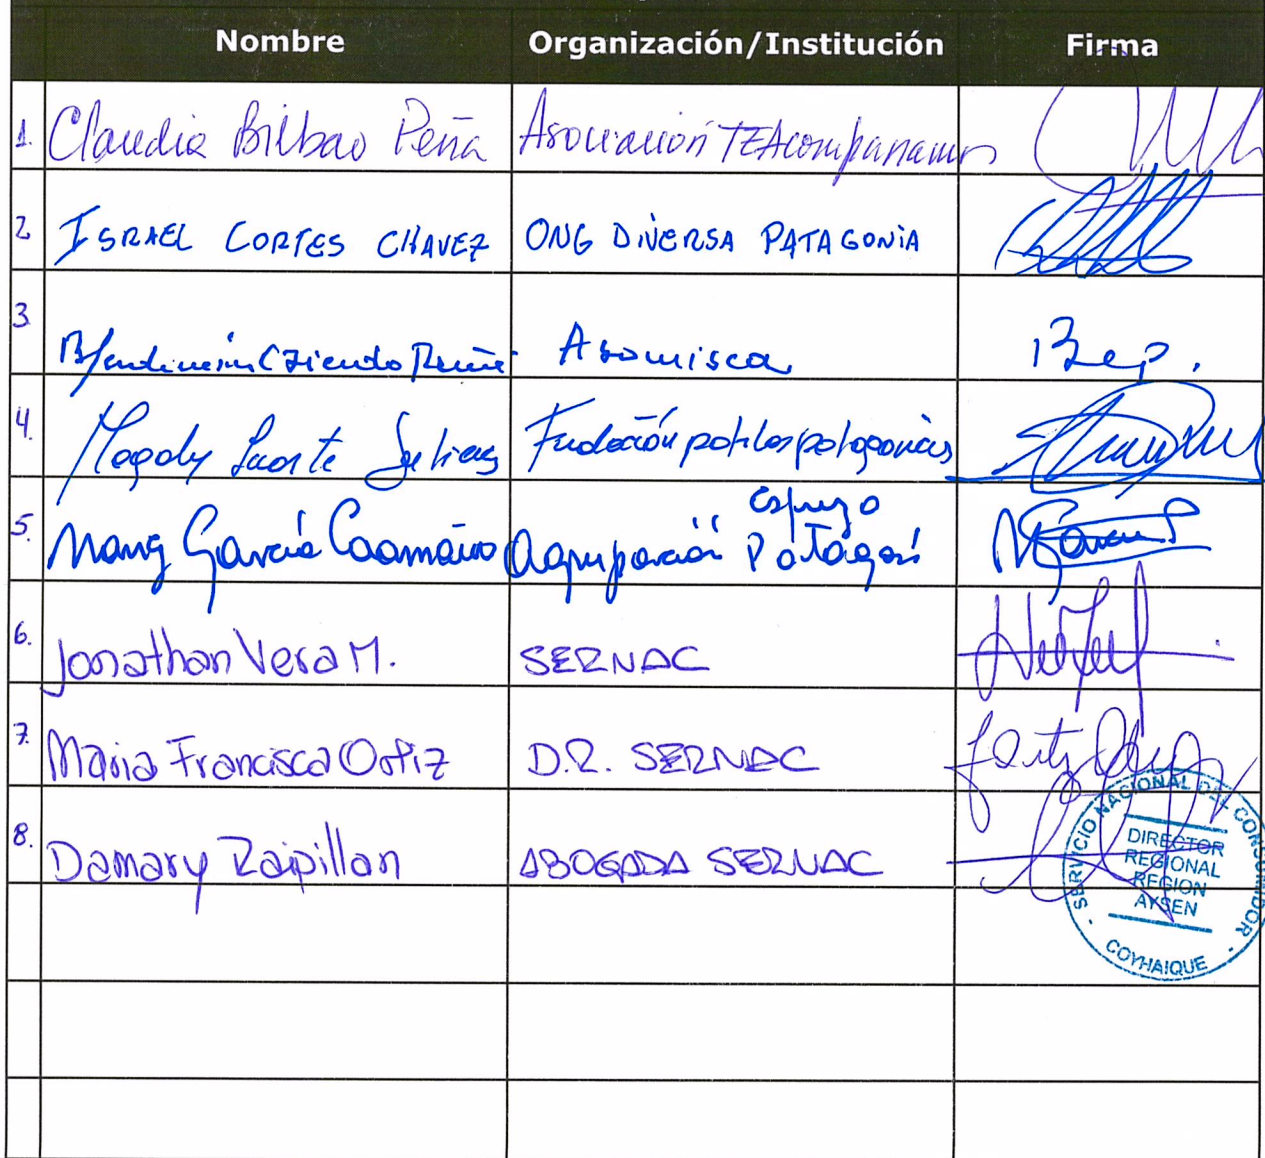 Nombre Organización/Institución Firma
1. Claudia Bilbao Peña Asociación TEAcompañamos
2 ISRAEL CORTES CHAVEZ ONG DIVERSA PATAGONIA
3. Asomisca
4. Magaly Fundación patitas patagonicas
5. Nancy García Caamaño Agrupación espuzo Patagon
6. Jonathan Vera M. SERNAC
7. Maria Francisca Ortiz D.R. SERNAC
8. Damary Raipillan ABOGADA SERNAC
SERVICIO NACIONAL DEL CONSUMIDOR
DIRECTOR
REGIONAL
REGION
AYSEN
COYHAIQUE